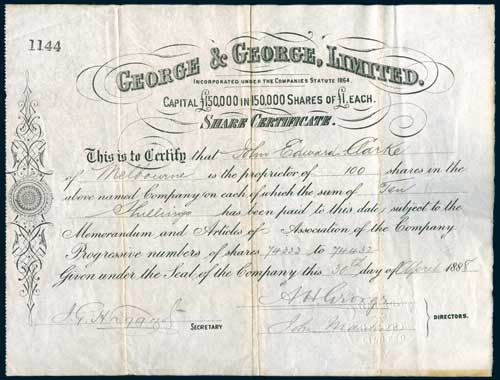 1144
GEORGE & GEORGE, LIMITED.
INCORPORATED UNDER THE COMPANIES STATUTE 1864.
CAPITAL £150,000 IN 150,000 SHARES OF £1, EACH.
SHARE CERTIFICATE.
This is to Certify that John Edward Clarke
of Melbourne is the proprietor of 100 shares in the
above named Company on each of which the sum of Ten
Shillings has been paid to this date, subject to the
Memorandum and Articles of Association of the Company.
Progressive numbers of shares 74333 to 74432
Given under the Seal of the Company this 30th day of April 1888
SECRETARY
DIRECTORS.
John